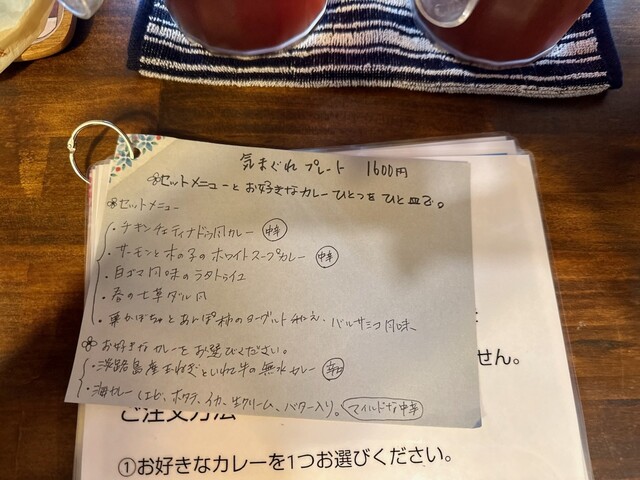 気まぐれプレート 1600円
※セットメニューとお好きなカレーひとつをひと皿で。
※セットメニュー
・チキンチェティナドゥ風カレー 中辛
・サーモンと木の子のホワイトスープカレー 中辛
・白ゴマ風味のラタトゥイユ
・春の七草ダル風
・栗かぼちゃとあんぽ柿のヨーグルト和え、バルサミコ風味
※お好きなカレーをお選びください。
・淡路島産玉ねぎといわて牛の無水カレー
・海カレー(エビ、ホタテ、イカ、生クリーム、バター入り)。マイルドな中辛
せん。
ご注文方法
①お好きなカレーを1つお選びください。